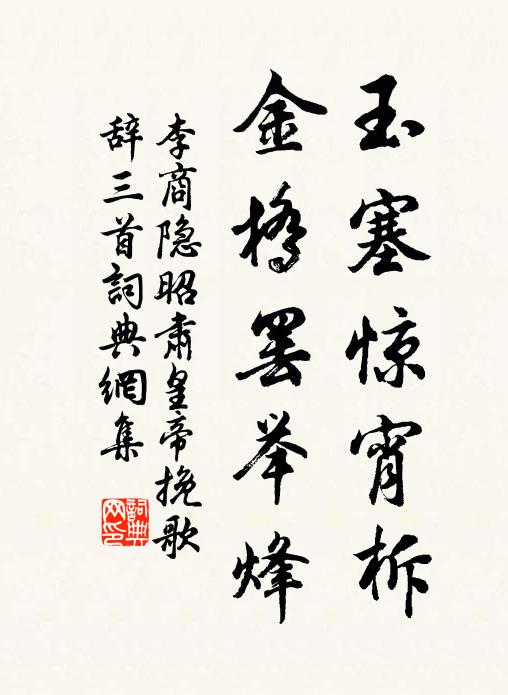 玉塞惊宵柝
金桥罢举烽
李商隐昭肃皇帝挽歌
辞三首詞典網集
詞典
网印